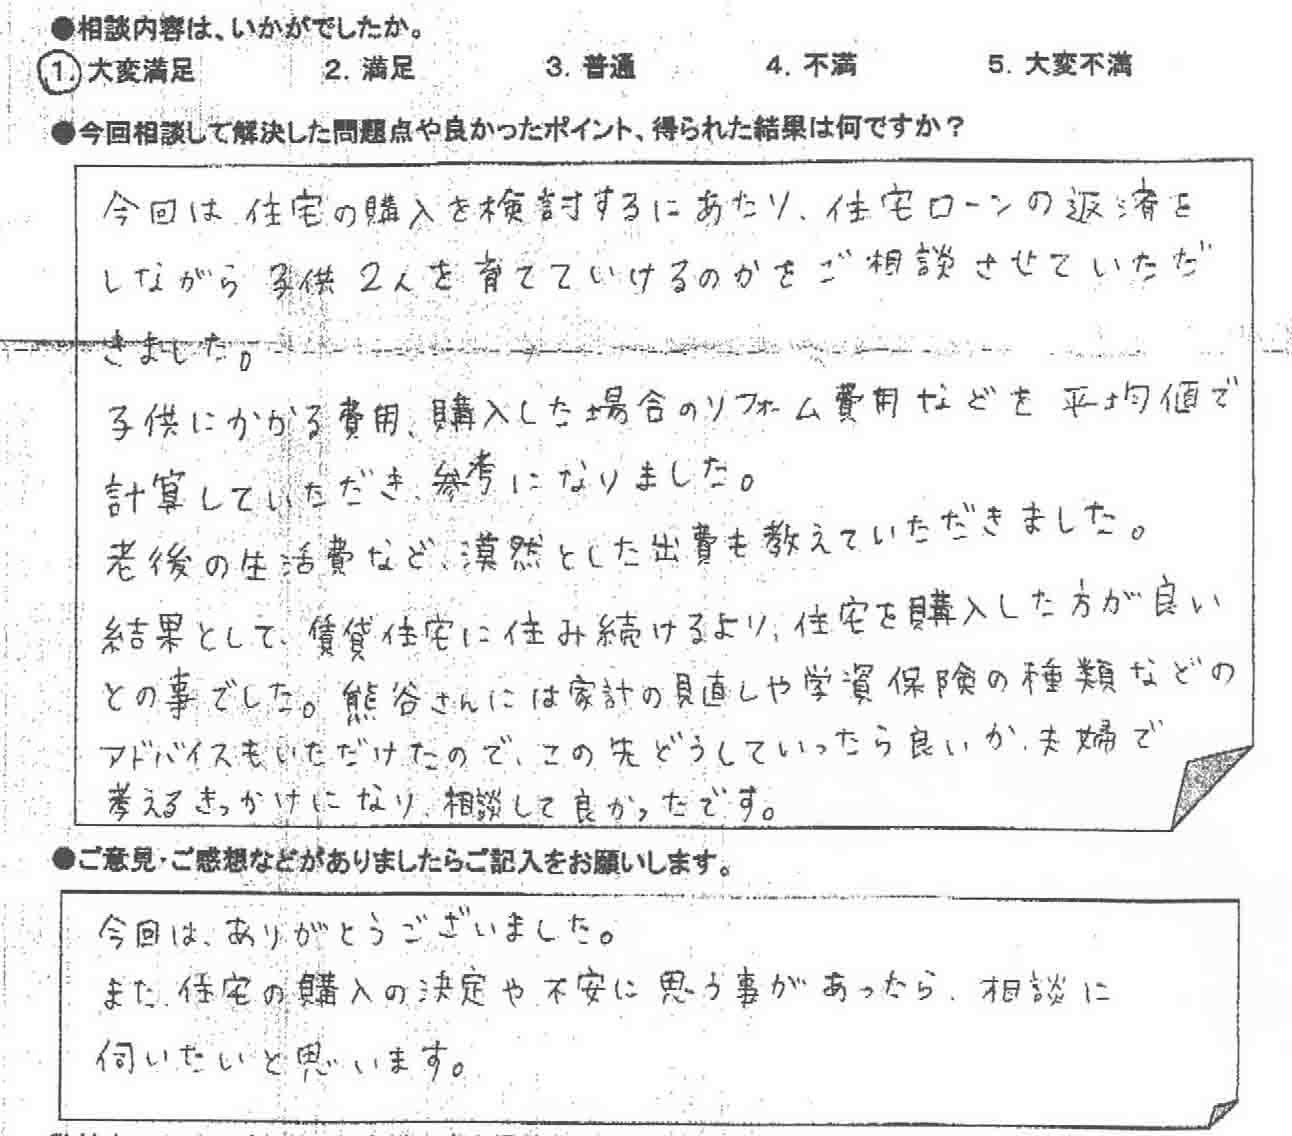 ●相談内容は、いかがでしたか。
1. 大変満足 2. 満足 3. 普通 4. 不満 5. 大変不満
●今回相談して解決した問題点や良かったポイント、得られた結果は何ですか？
今回は、住宅の購入を検討するにあたり、住宅ローンの返済を
しながら子供2人を育てていけるのかをご相談させていただ
きました。
子供にかかる費用、購入した場合のリフォーム費用などを平均値で
計算していただき、参考になりました。
老後の生活費など、漠然とした出費も教えていただきました。
結果として、賃貸住宅に住み続けるより、住宅を購入した方が良い
との事でした。熊谷さんには家計の見直しや学資保険の種類などの
アドバイスもいただけたので、この先どうしていったら良いか、夫婦で
考えるきっかけになり、相談して良かったです。
●ご意見・ご感想などがありましたらご記入をお願いします。
今回は、ありがとうございました。
また、住宅の購入の決定や不安に思う事があったら、相談に
伺いたいと思います。